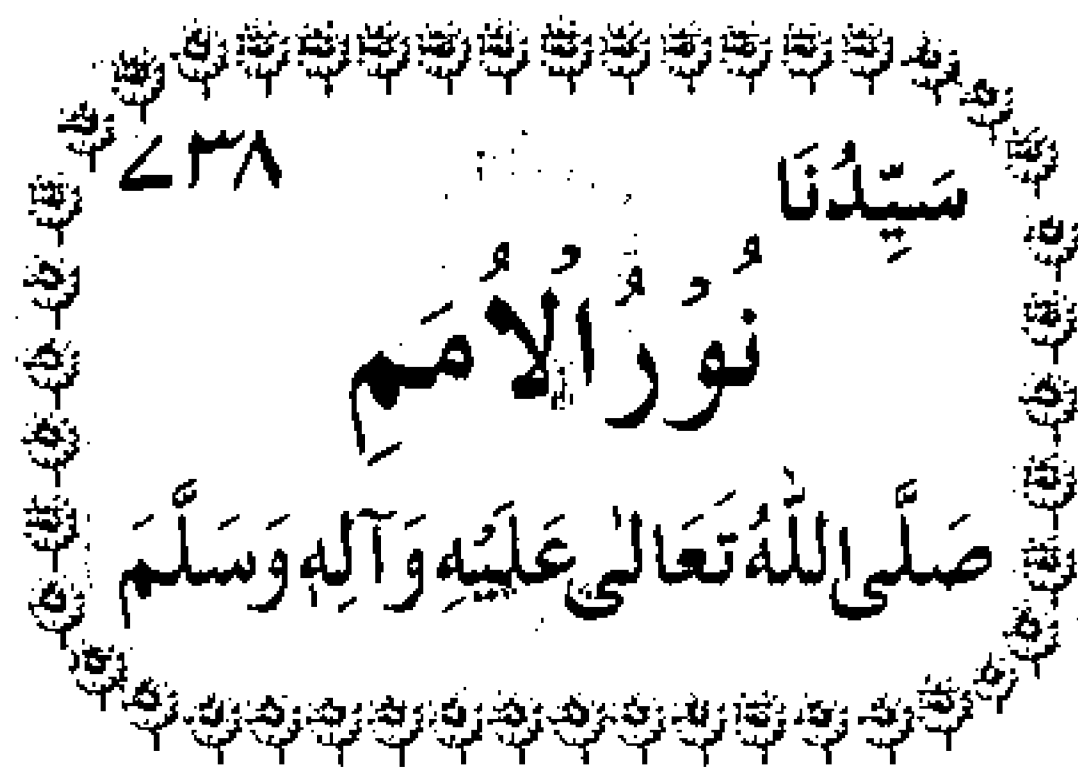 سَيِّدُنَا ۷۳۸
نُوْرُ الْاُمَمِ
صَلَّى اللّٰهُ تَعَالٰى عَلَيْهِ وَآلِهٖ وَسَلَّمَ